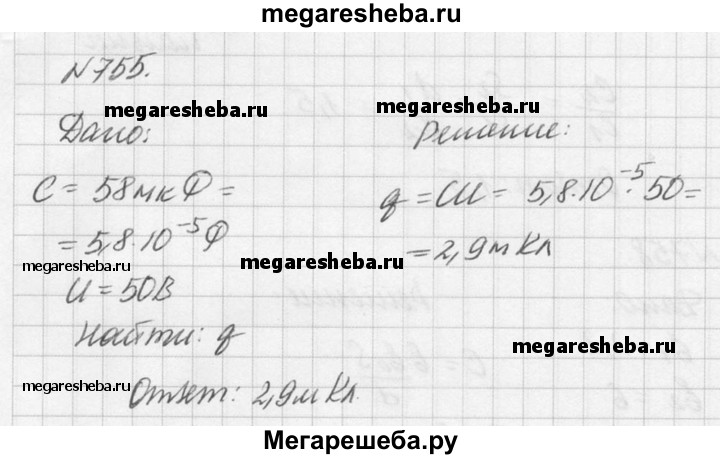 megaresheba.ru
N755.
megaresheba.ru
megaresheba.ru
Дано:
Решение:
C = 58мкФ =
= 5,8·10⁻⁵Ф
q = CU = 5,8·10⁻⁵·50 =
= 2,9мКл
megaresheba.ru
megaresheba.ru
U = 50В
Найти: q
megaresheba.ru
megaresheba.ru
Ответ: 2,9мКл
Мегарешеба.ру